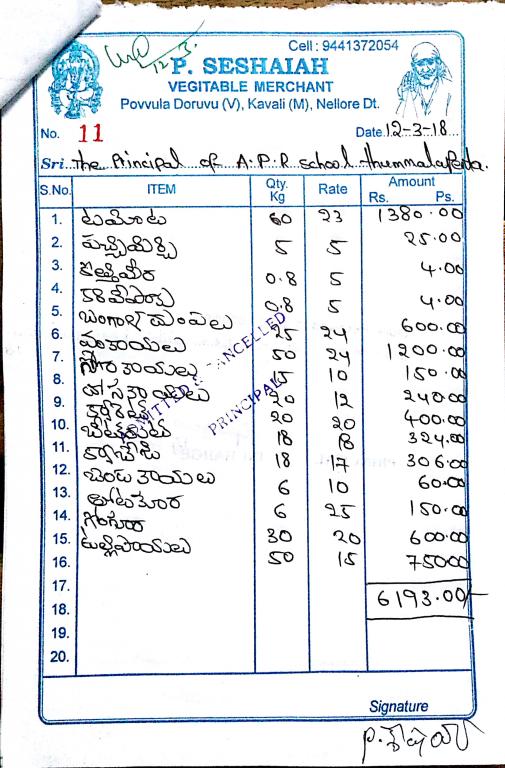 12-3.
Cell : 9441372054
P. SESHAIAH
VEGITABLE MERCHANT
Povvula Doruvu (V), Kavali (M), Nellore Dt.
No. 11 Date 12-3-18
Sri. The Principal of A.P.R School Thummalapenta.
S.No. ITEM Qty. Kg Rate Amount Rs. Ps.
1. టమోటు 60 23 1380.00
2. పచ్చిమిర్చి 5 5 25.00
3. కొత్తిమీర 0.8 5 4.00
4. కరివేపాకు 0.8 5 4.00
5. బంగాళదుంపలు 25 24 600.00
6. వంకాయలు 50 24 1200.00
7. గోరుకాయలు 15 10 150.00
8. దోసకాయలు 20 12 240.00
9. 20 20 400.00
10. 18 18 324.00
11. క్యాబేజి 18 17 306.00
12. బెండకాయలు 6 10 60.00
13. తోటకూర 6 25 150.00
14. గోంగూర 30 20 600.00
15. ఉల్లిపాయలు 50 15 75000
16.
17. 6193.00/-
18.
19.
20.
ADMITTED & CANCELLED
PRINCIPAL
Signature